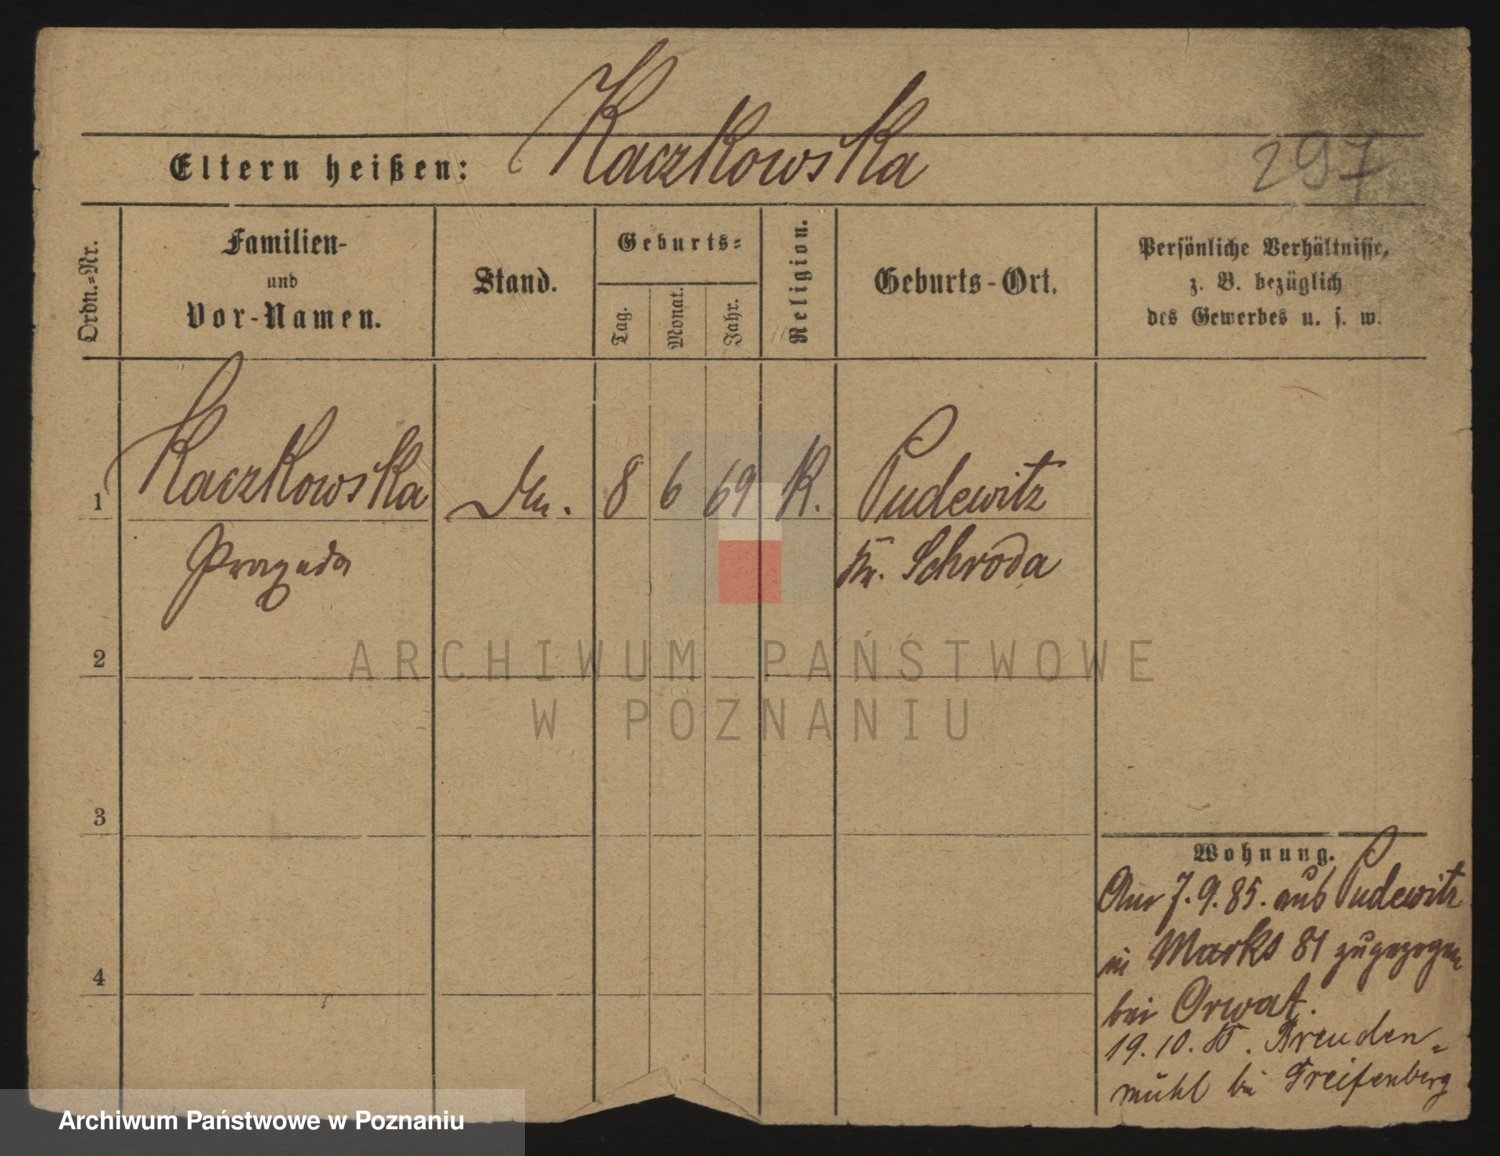 Kaczkowska
Eltern heißen:
297
Ordn.-Nr.
Familien-
und
Vor-Namen.
Stand.
Geburts-
Tag.
Monat.
Jahr.
Religion.
Geburts-Ort.
Persönliche Verhältnisse,
z. B. bezüglich
des Gewerbes u. s. w.
1 Kaczkowska 8 6 69 K. Pudewitz
Kr. Schroda
2
3
4
Wohnung.
Am 7.9.85. aus Pudewitz
in Marks 81 zugezogen
bei Orwat.
19.10.85.
mühl bei Greifenberg
ARCHIWUM PAŃSTWOWE
W POZNANIU
Archiwum Państwowe w Poznaniu